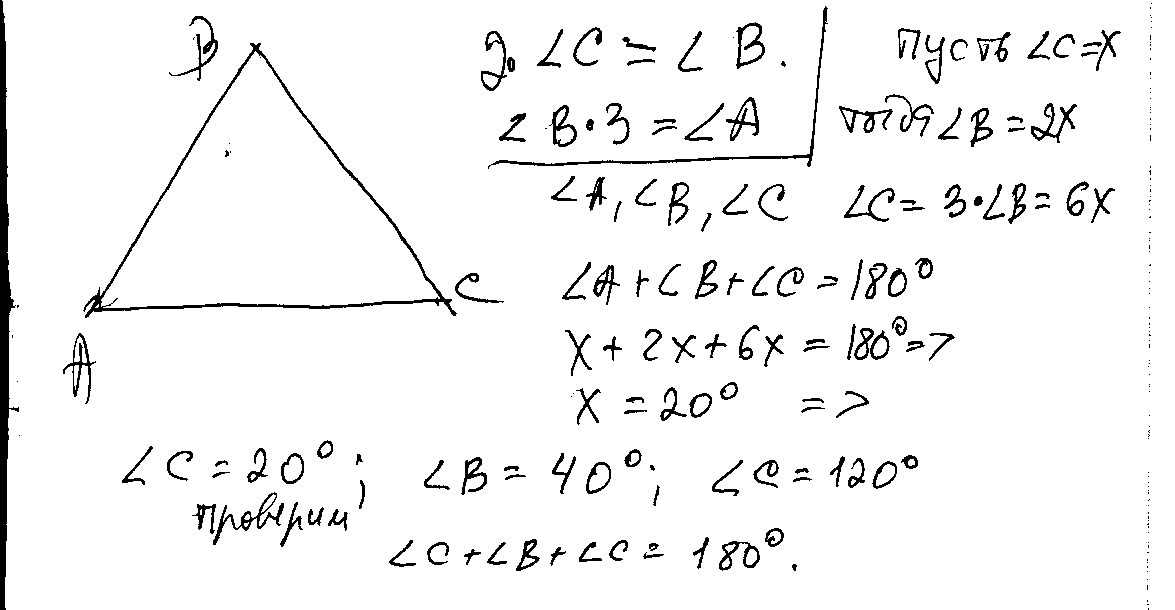 B
2. ∠C = ∠B.
∠B·3 = ∠A
∠A, ∠B, ∠C
Пусть ∠C=x
тогда ∠B = 2x
∠C = 3·∠B = 6x
∠A + ∠B + ∠C = 180°
x + 2x + 6x = 180° =>
x = 20° =>
C
A
∠C = 20°; ∠B = 40°; ∠C = 120°
проверим
∠C + ∠B + ∠C = 180°.